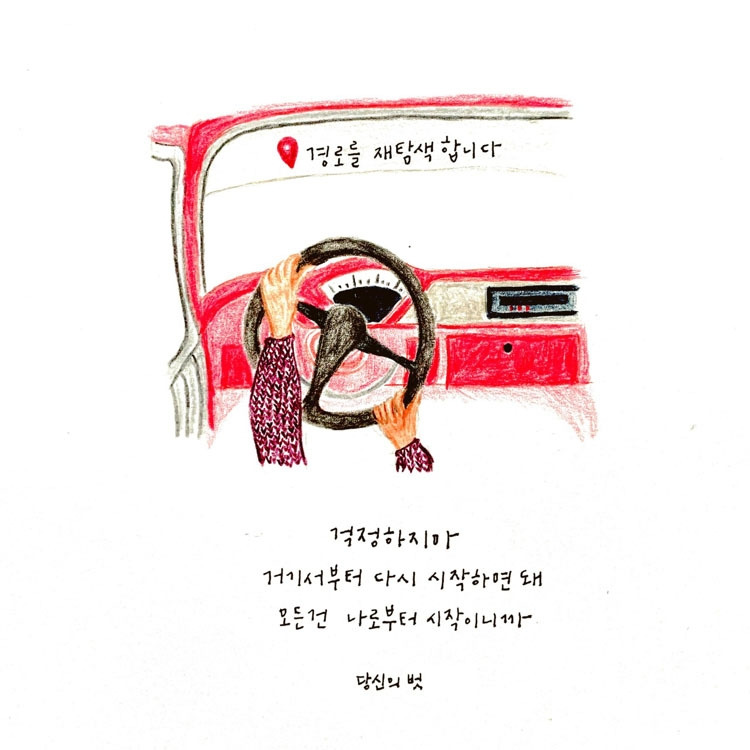 경로를 재탐색합니다
걱정하지마
거기서부터 다시 시작하면 돼
모든건 나로부터 시작이니까
당신의 벗